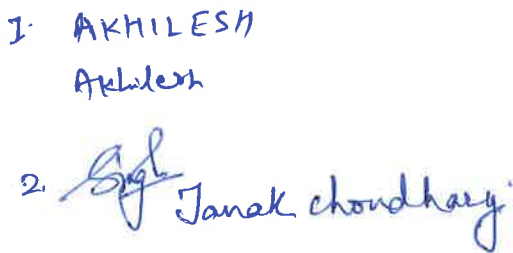 1. AKHILESH
Akhilesh
2. Singh Janak choudhary